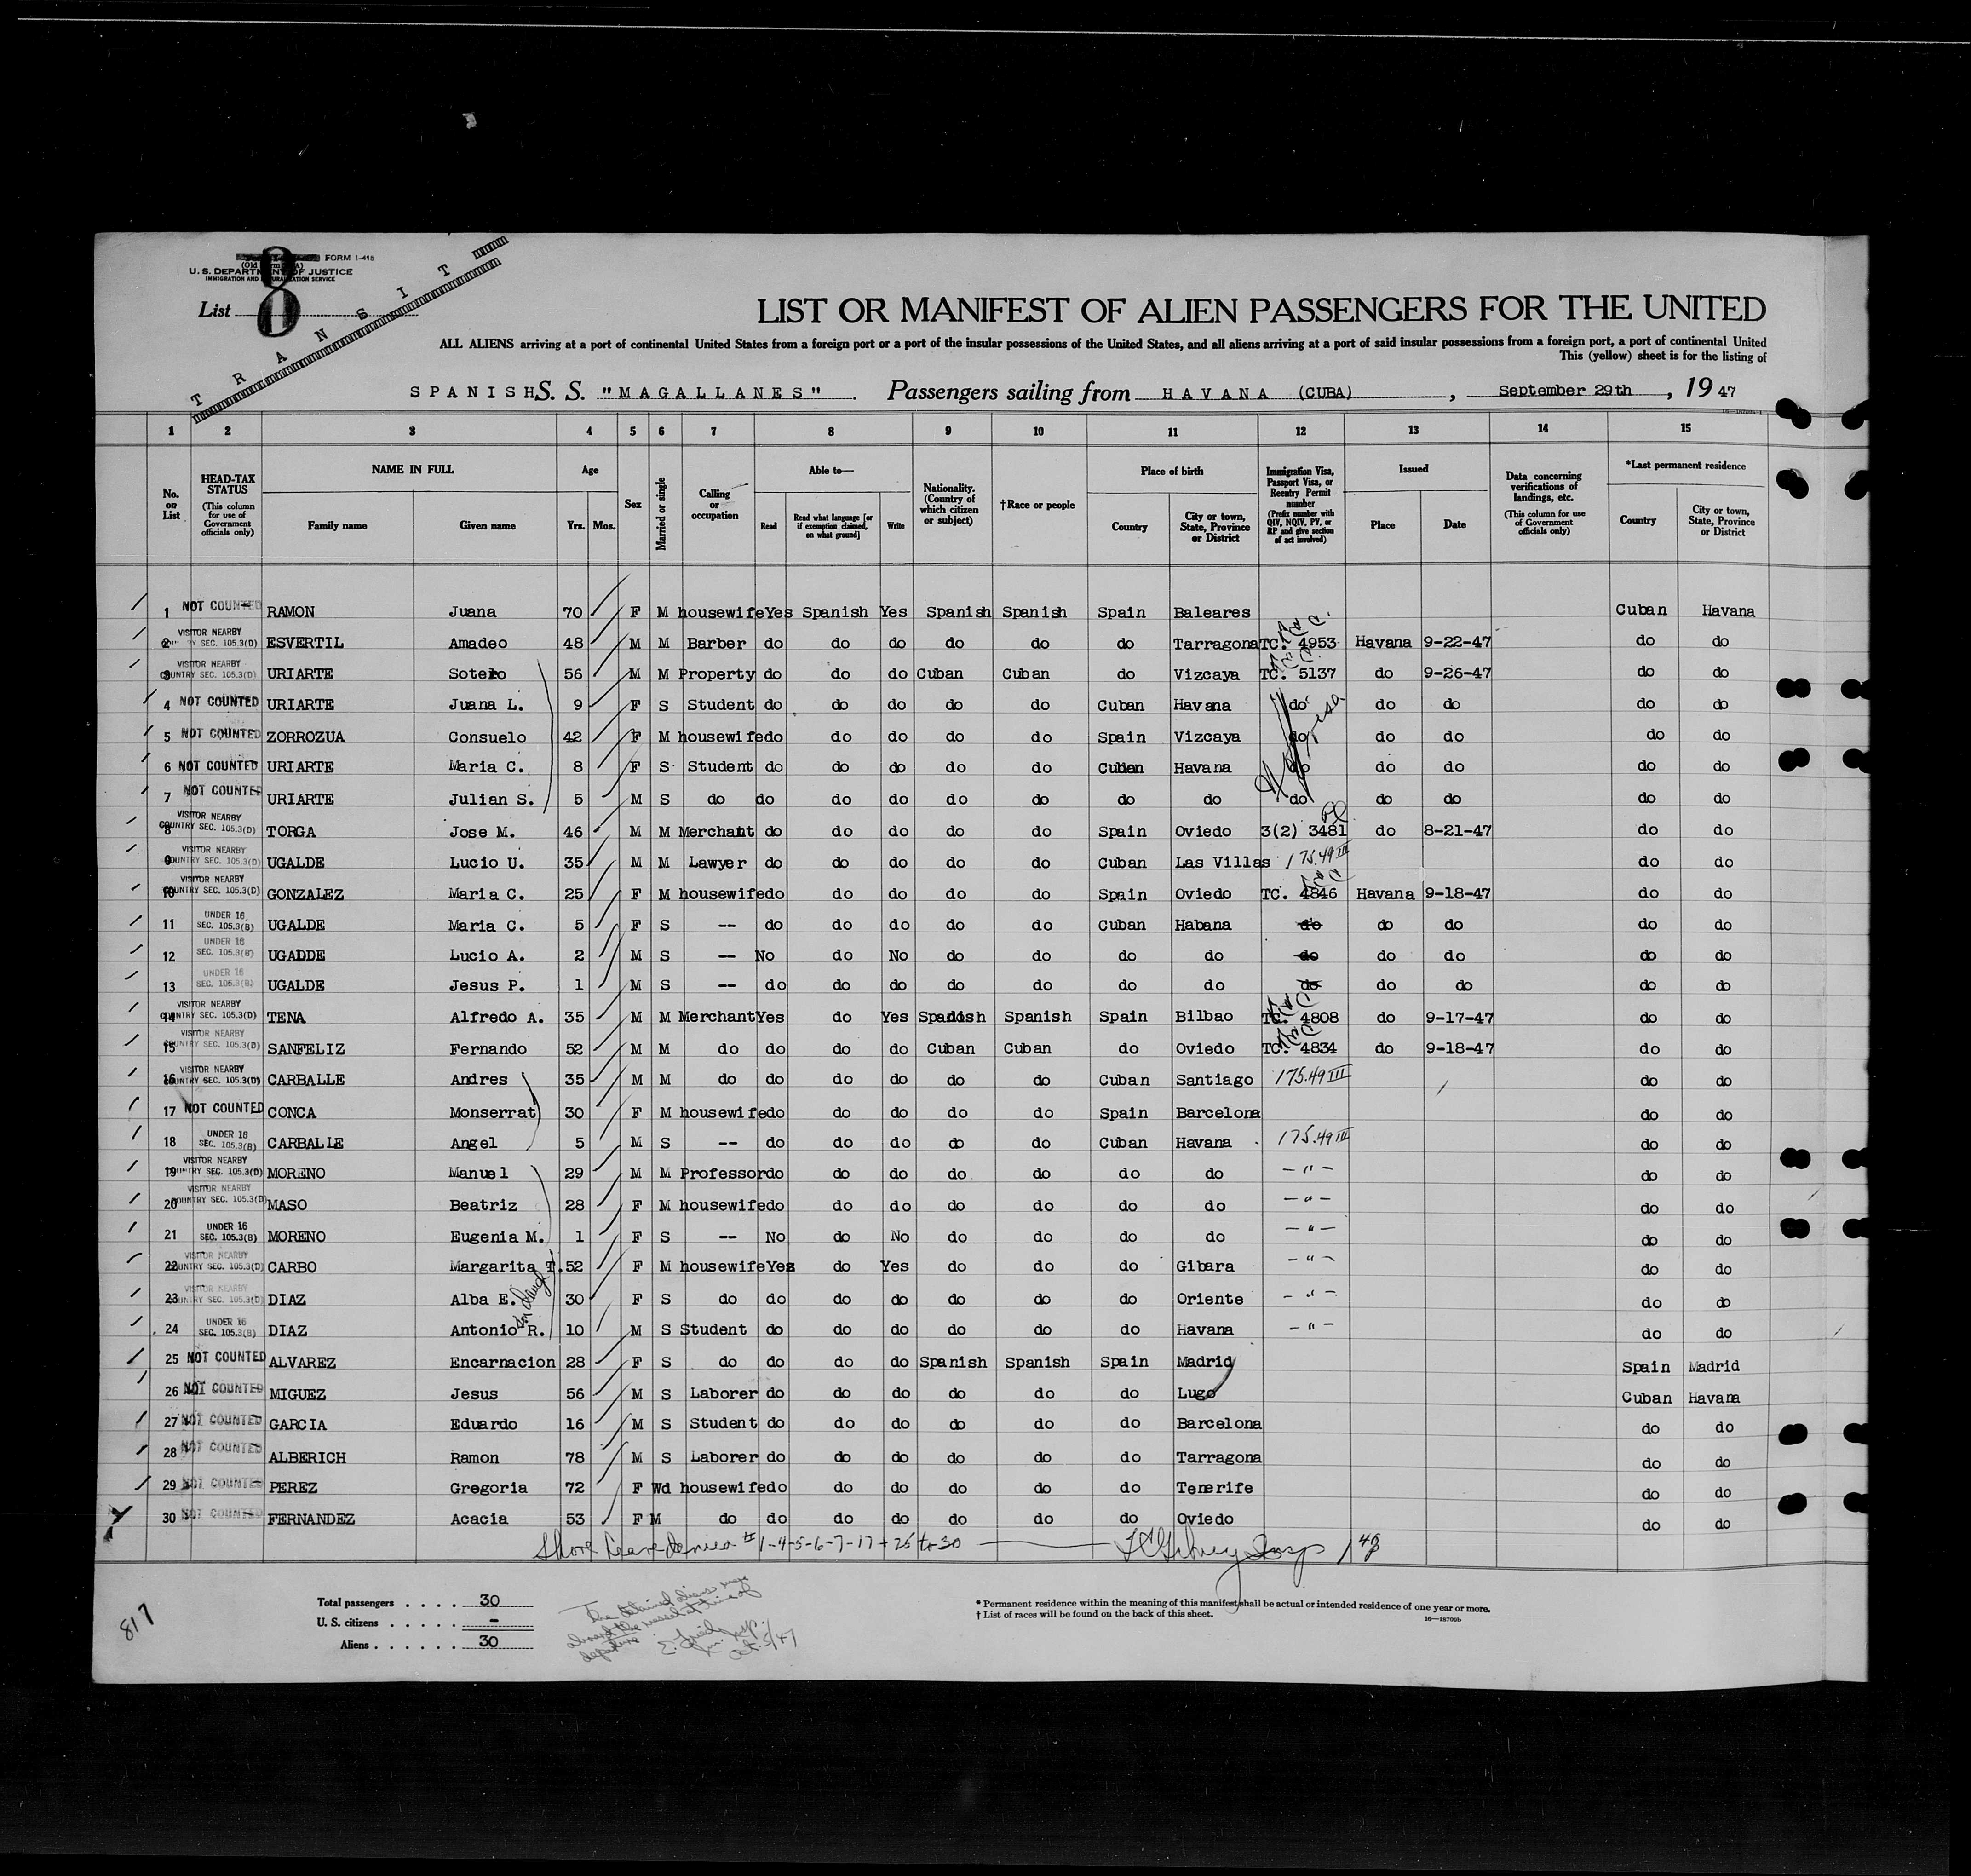 FORM I-415
U. S. DEPARTMENT OF JUSTICE
IMMIGRATION AND NATURALIZATION SERVICE
List 8
T R A N S I T
LIST OR MANIFEST OF ALIEN PASSENGERS FOR THE UNITED
ALL ALIENS arriving at a port of continental United States from a foreign port or a port of the insular possessions of the United States, and all aliens arriving at a port of said insular possessions from a foreign port, a port of continental United
This (yellow) sheet is for the listing of
SPANISH S. S. "MAGALLANES" Passengers sailing from HAVANA (CUBA), September 29th, 19 47
1 2 3 4 5 6 7 8 9 10 11 12 13 14 15
No. on List
HEAD-TAX STATUS (This column for use of Government officials only)
NAME IN FULL Family name Given name
Age Yrs. Mos.
Sex
Married or single
Calling or occupation
Able to— Read Read what language [or if exemption claimed, on what ground] Write
Nationality. (Country of which citizen or subject)
†Race or people
Place of birth Country City or town, State, Province or District
Immigration Visa, Passport Visa, or Reentry Permit number (Prefix number with QIV, NQIV, PV, or RP and give section of act involved)
Issued Place Date
Data concerning verifications of landings, etc. (This column for use of Government officials only)
*Last permanent residence Country City or town, State, Province or District
1 NOT COUNTED RAMON Juana 70 F M housewife Yes Spanish Yes Spanish Spanish Spain Baleares Cuban Havana
2 VISITOR NEARBY COUNTRY SEC. 105.3(D) ESVERTIL Amadeo 48 M M Barber do do do do do do Tarragona TC. 4953 Havana 9-22-47 do do
3 VISITOR NEARBY COUNTRY SEC. 105.3(D) URIARTE Sotero 56 M M Property do do do Cuban Cuban do Vizcaya TC. 5137 do 9-26-47 do do
4 NOT COUNTED URIARTE Juana L. 9 F S Student do do do do do Cuban Havana do do do do do
5 NOT COUNTED ZORROZUA Consuelo 42 F M housewife do do do do do Spain Vizcaya do do do do do
6 NOT COUNTED URIARTE Maria C. 8 F S Student do do do do do Cuban Havana do do do do do
7 NOT COUNTED URIARTE Julian S. 5 M S do do do do do do do do do do do do do
8 VISITOR NEARBY COUNTRY SEC. 105.3(D) TORGA Jose M. 46 M M Merchant do do do do do Spain Oviedo 3(2) 3481 do 8-21-47 do do
9 VISITOR NEARBY COUNTRY SEC. 105.3(D) UGALDE Lucio U. 35 M M Lawyer do do do do do Cuban Las Villas 175.49 III do do
10 VISITOR NEARBY COUNTRY SEC. 105.3(D) GONZALEZ Maria C. 25 F M housewife do do do do do Spain Oviedo TC. 4846 Havana 9-18-47 do do
11 UNDER 16 SEC. 105.3(B) UGALDE Maria C. 5 F S -- do do do do do Cuban Habana do do do do do
12 UNDER 16 SEC. 105.3(B) UGADDE Lucio A. 2 M S -- No do No do do do do do do do do do
13 UNDER 16 SEC. 105.3(B) UGALDE Jesus P. 1 M S -- do do do do do do do do do do do do
14 VISITOR NEARBY COUNTRY SEC. 105.3(D) TENA Alfredo A. 35 M M Merchant Yes do Yes Spanish Spanish Spain Bilbao TC. 4808 do 9-17-47 do do
15 VISITOR NEARBY COUNTRY SEC. 105.3(D) SANFELIZ Fernando 52 M M do do do do Cuban Cuban do Oviedo TC. 4834 do 9-18-47 do do
16 VISITOR NEARBY COUNTRY SEC. 105.3(D) CARBALLE Andres 35 M M do do do do do do Cuban Santiago 175.49 III do do
17 NOT COUNTED CONCA Monserrat 30 F M housewife do do do do do Spain Barcelona do do
18 UNDER 16 SEC. 105.3(B) CARBALLE Angel 5 M S -- do do do do do Cuban Havana 175.49 III do do
19 VISITOR NEARBY COUNTRY SEC. 105.3(D) MORENO Manuel 29 M M Professor do do do do do do do — " — do do
20 VISITOR NEARBY COUNTRY SEC. 105.3(D) MASO Beatriz 28 F M housewife do do do do do do do — " — do do
21 UNDER 16 SEC. 105.3(B) MORENO Eugenia M. 1 F S -- No do No do do do do — " — do do
22 VISITOR NEARBY COUNTRY SEC. 105.3(D) CARBO Margarita T. 52 F M housewife Yes do Yes do do do Gibara — " — do do
23 VISITOR NEARBY COUNTRY SEC. 105.3(D) DIAZ Alba E. 30 F S do do do do do do do Oriente — " — do do
24 UNDER 16 SEC. 105.3(B) DIAZ Antonio R. 10 M S Student do do do do do do Havana — " — do do
25 NOT COUNTED ALVAREZ Encarnacion 28 F S do do do do Spanish Spanish Spain Madrid Spain Madrid
26 NOT COUNTED MIGUEZ Jesus 56 M S Laborer do do do do do do Lugo Cuban Havana
27 NOT COUNTED GARCIA Eduardo 16 M S Student do do do do do do Barcelona do do
28 NOT COUNTED ALBERICH Ramon 78 M S Laborer do do do do do do Tarragona do do
29 NOT COUNTED PEREZ Gregoria 72 F Wd housewife do do do do do do Tenerife do do
30 NOT COUNTED FERNANDEZ Acacia 53 F M do do do do do do do Oviedo do do
Shore Leave denied # 1-4-5-6-7-17 + 25 to 30
Total passengers . . . . 30
U. S. citizens . . . . . –
Aliens . . . . . . 30
The detained aliens were aboard the vessel at time of departure
Oct. 5/47
* Permanent residence within the meaning of this manifest shall be actual or intended residence of one year or more.
† List of races will be found on the back of this sheet.
16—18709b
817